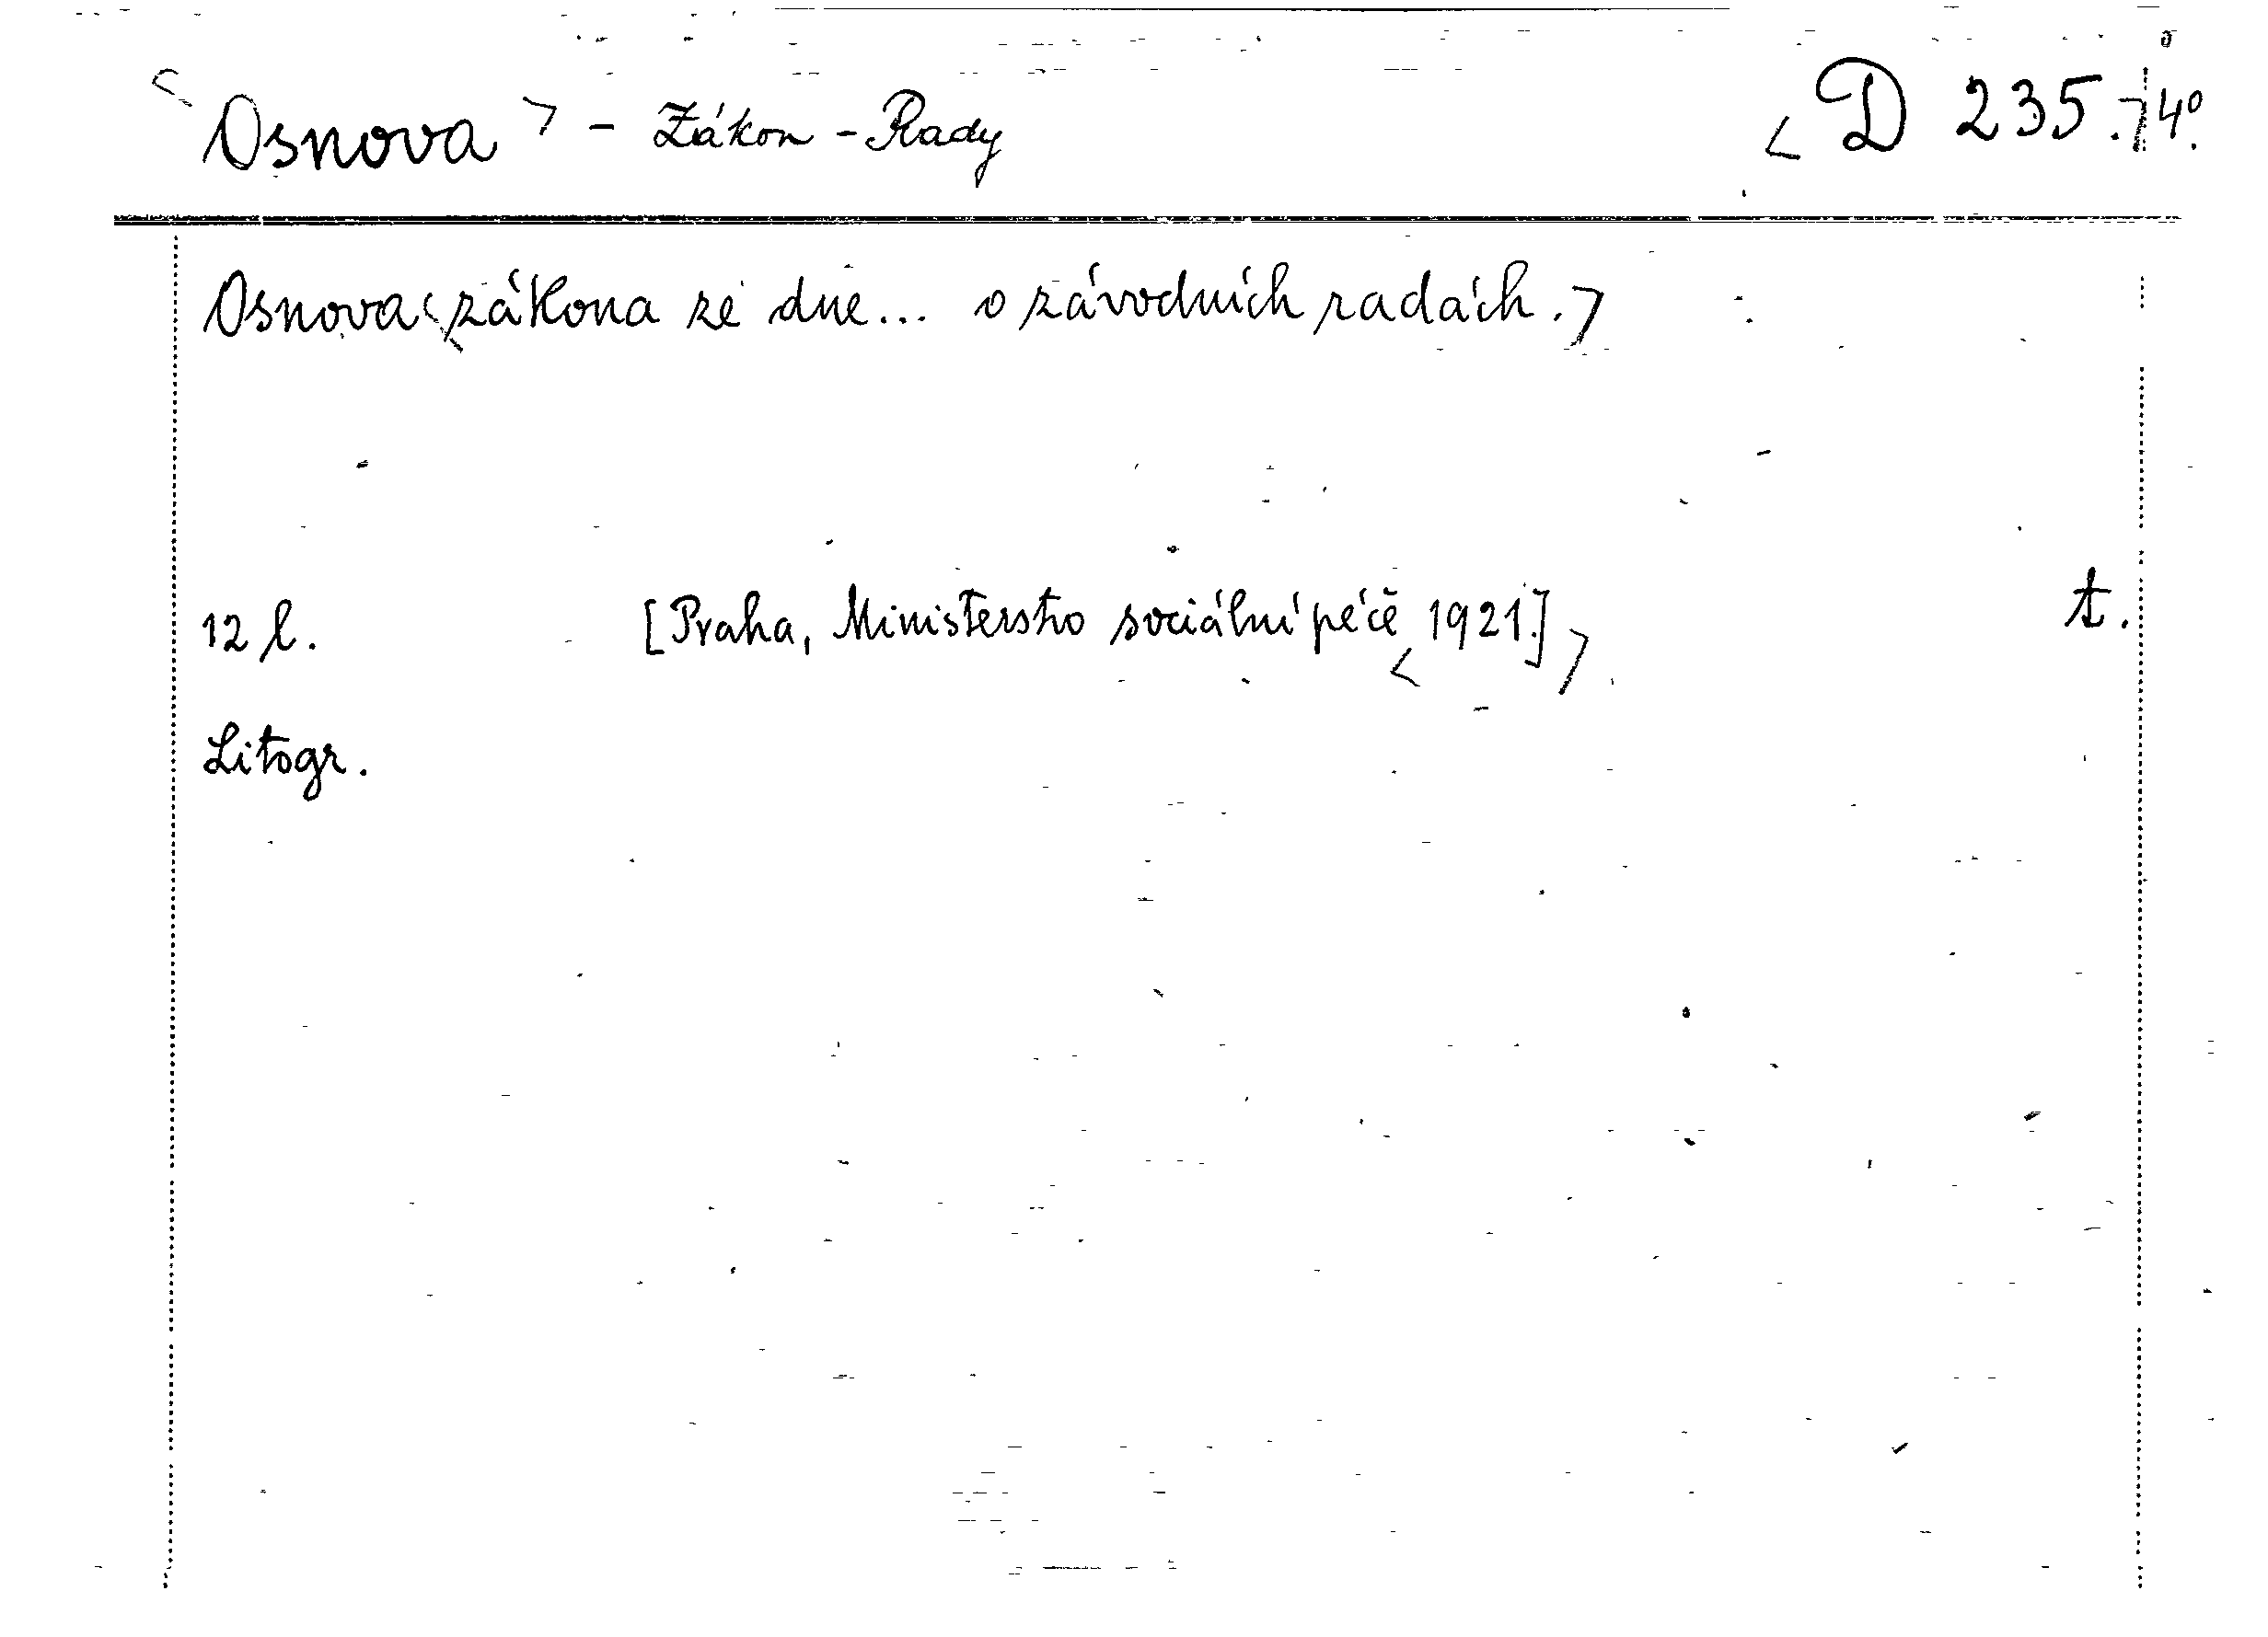 <Osnova> - Zákon - Rady <D 235.>4º.
Osnova <zákona ze dne... o závodních radách.>
12 l. [Praha, Ministerstvo sociální péče <1921.]> t.
Litogr.